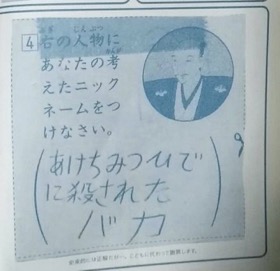 4 右の人物に
みぎ じんぶつ
あなたの考
かんが
えたニック
ネームをつ
けなさい。
(あけちみつひで
に殺された
バカ)